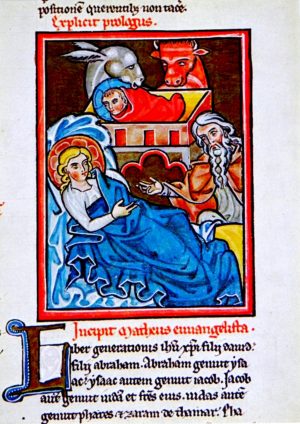 positionē querentib; non tacē.
Explicit prologus.
Incipit Matheus euuangelista.
Liber generationis ihu xpi filii dauid.
filii abraham. Abraham genuit ysa
ac. ysaac autem genuit iacob. Iacob
autē genuit iudā et frēs eius. iudas autē
genuit phares & zaram de thamar. Pha